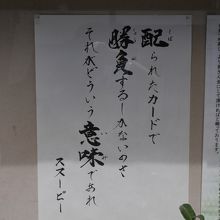 配られたカードで
勝負するしかないのさ
それがどういう意味であれ
スヌーピー